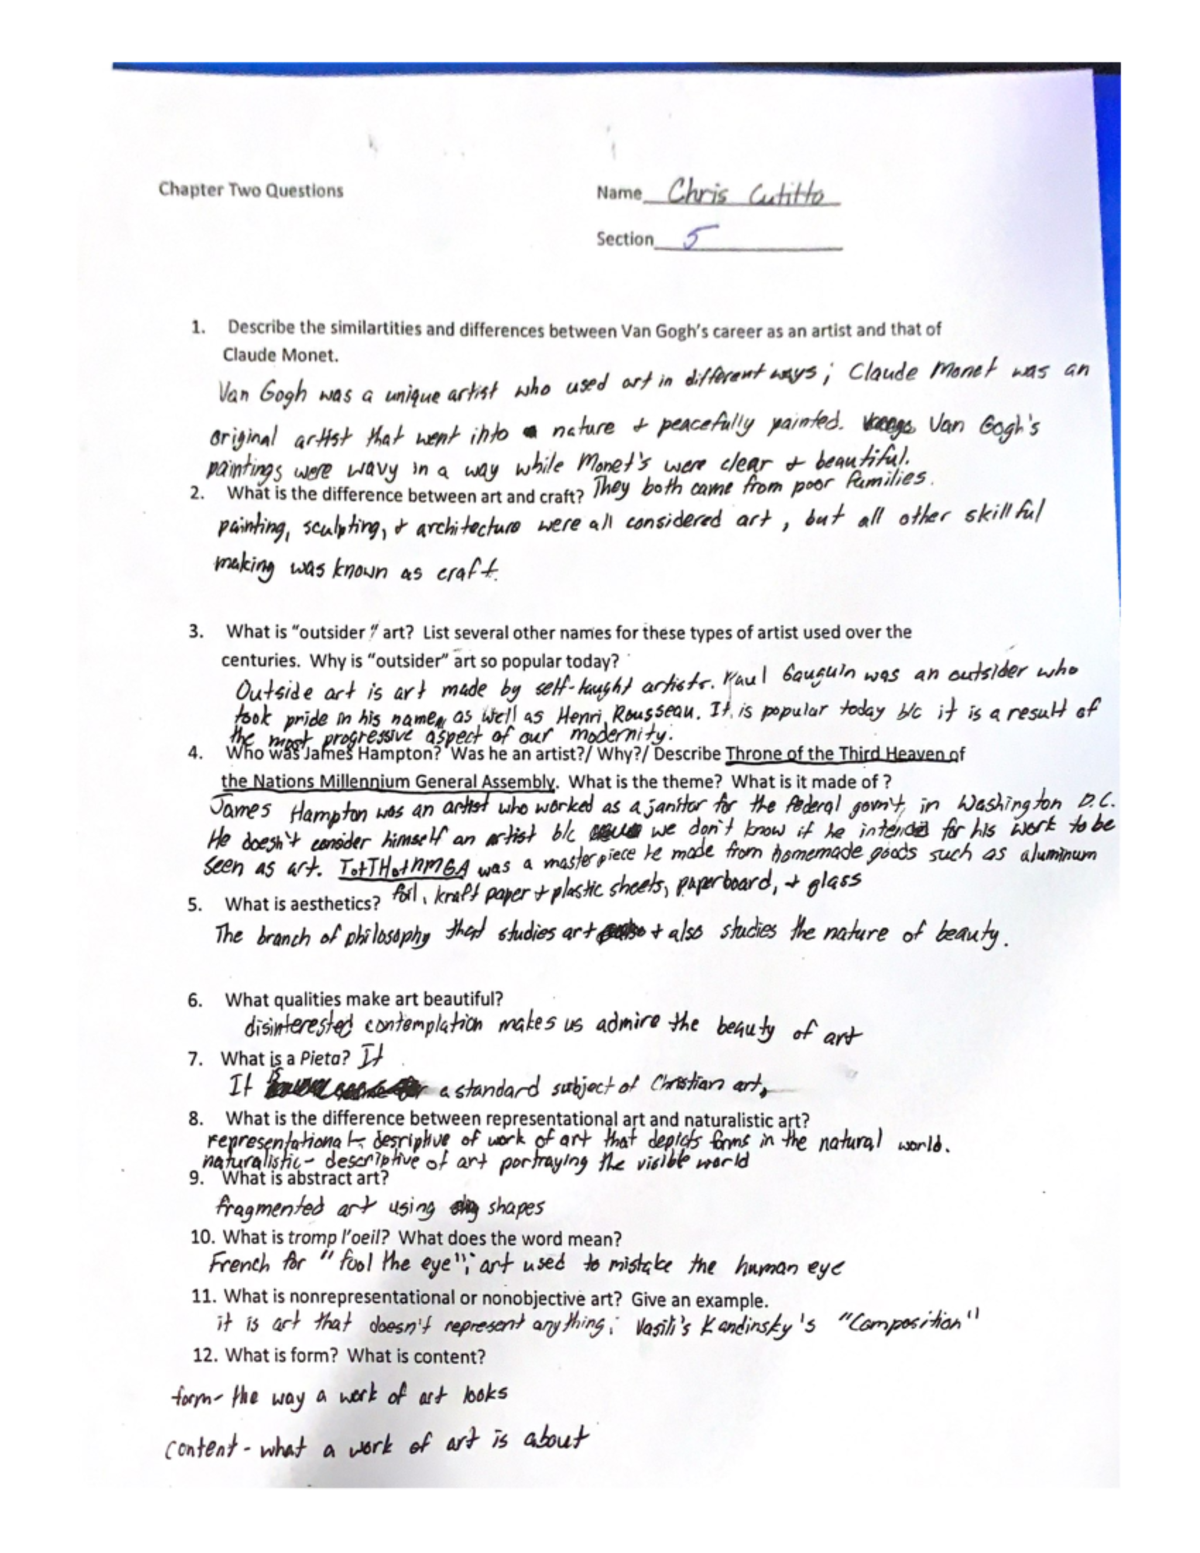 Chapter Two Questions
Name Chris Cutitto
Section 5
1. Describe the similartities and differences between Van Gogh's career as an artist and that of
Claude Monet.
Van Gogh was a unique artist who used art in different ways; Claude Monet was an
original artist that went into nature & peacefully painted. Van Gogh's
paintings were wavy in a way while Monet's were clear & beautiful.
They both came from poor families.
2. What is the difference between art and craft?
painting, sculpting, & architecture were all considered art, but all other skillful
making was known as craft.
3. What is "outsider" art? List several other names for these types of artist used over the
centuries. Why is "outsider" art so popular today?
Outside art is art made by self-taught artists. Paul Gauguin was an outsider who
took pride in his name, as well as Henri Rousseau. It is popular today b/c it is a result of
the most progressive aspect of our modernity.
4. Who was James Hampton? Was he an artist?/ Why?/ Describe Throne of the Third Heaven of
the Nations Millennium General Assembly. What is the theme? What is it made of ?
James Hampton was an artist who worked as a janitor for the federal govn't, in Washington D.C.
He doesn't consider himself an artist b/c we don't know if he intended for his work to be
seen as art. TotTHotNMGA was a masterpiece he made from homemade goods such as aluminum
foil, kraft paper & plastic sheets, paperboard, & glass
5. What is aesthetics?
The branch of philosophy that studies art & also studies the nature of beauty.
6. What qualities make art beautiful?
disinterested contemplation makes us admire the beauty of art
7. What is a Pieta? It
It is a standard subject of Christian art.
8. What is the difference between representational art and naturalistic art?
representational - desriptive of work of art that depicts forms in the natural world.
naturalistic - descriptive of art portraying the visible world
9. What is abstract art?
fragmented art using shapes
10. What is tromp l'oeil? What does the word mean?
French for "fool the eye"; art used to mistake the human eye
11. What is nonrepresentational or nonobjective art? Give an example.
it is art that doesn't represent anything; Vasili's Kandinsky's "Composition"
12. What is form? What is content?
form - the way a work of art looks
content - what a work of art is about